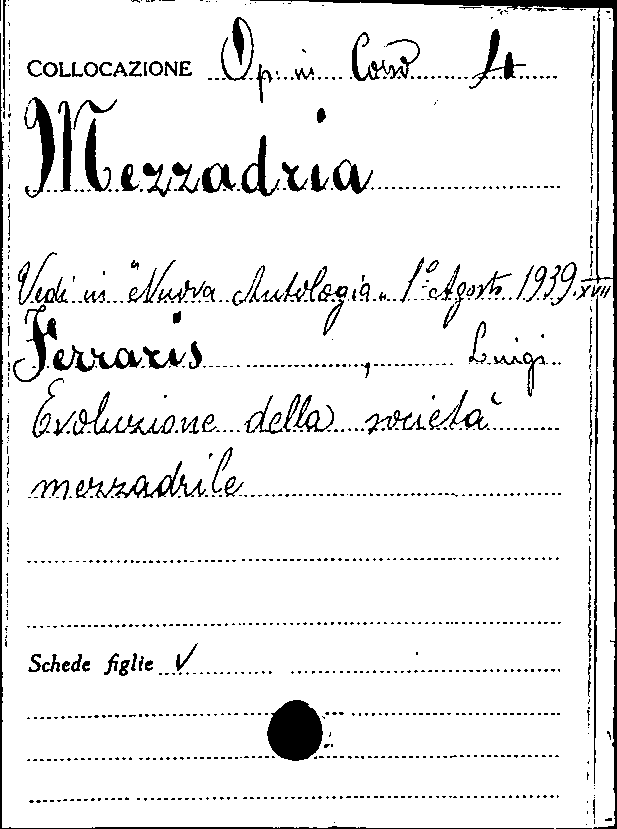 COLLOCAZIONE Op. in Corso 4
Mezzadria
Vedi in "Nuova Antologia" 1° Agosto 1939. XVII
Ferraris, Luigi
Evoluzione della società
mezzadrile
Schede figlie V